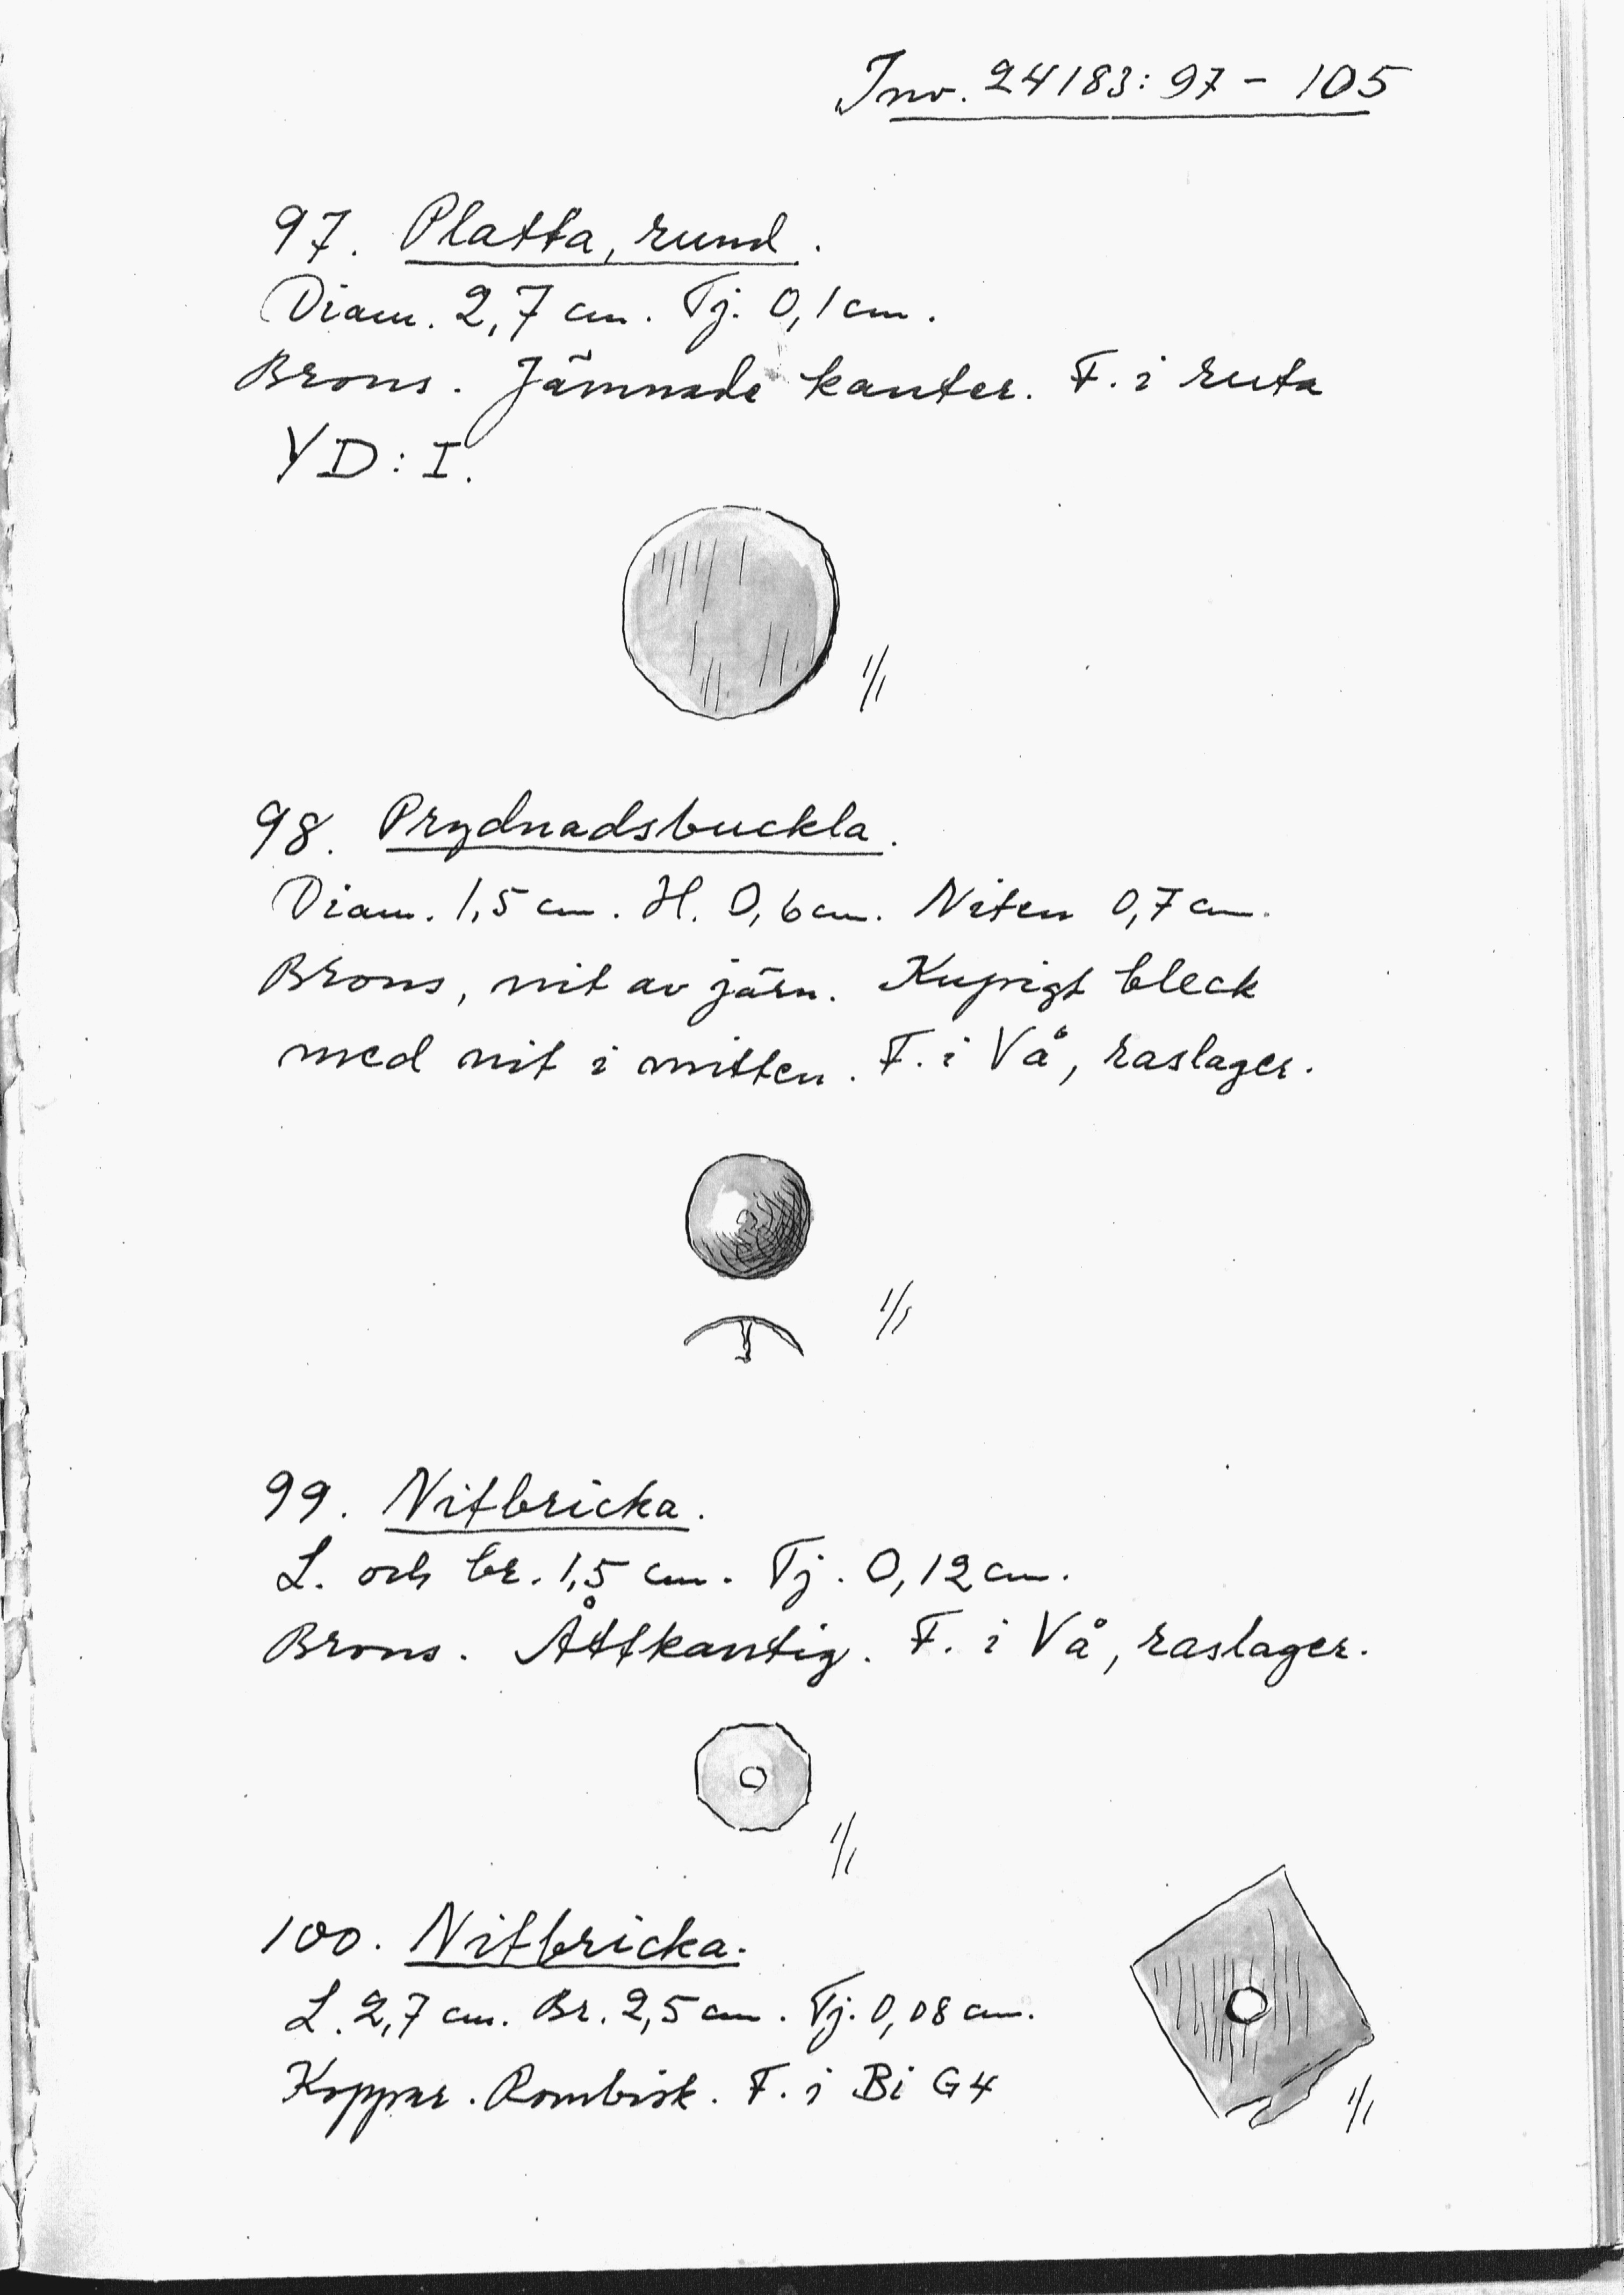 Inv. 24183: 97 - 105
97. Platta, rund.
Diam. 2,7 cm. Tj. 0,1 cm.
Brons. Jämnade kanter. F. i ruta
YD: I.
1/1
98. Prydnadsbuckla.
Diam. 1,5 cm. H. 0,6 cm. Niten 0,7 cm.
Brons, nit av järn. Kupigt bleck
med nit i mitten. F. i Vå, raslager.
1/1
99. Nitbricka.
L. och br. 1,5 cm. Tj. 0,12 cm.
Brons. Åttkantig. F. i Vå, raslager.
1/1
100. Nitbricka.
L. 2,7 cm. Br. 2,5 cm. Tj. 0,08 cm.
Koppar. Rombisk. F. i Bi G4
1/1